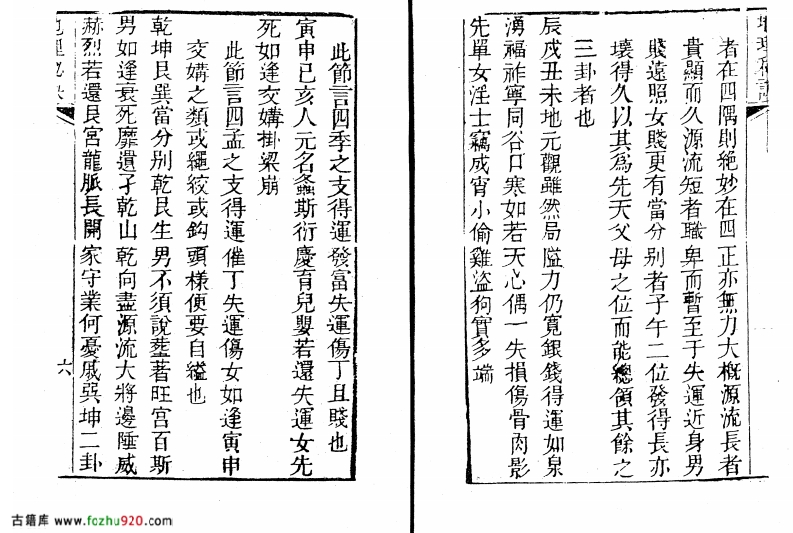 者在四隅則絶妙在四正亦無力大概源流長者
貴顯而久源流短者職卑而暫至于失運近身男
賤遠照女賤更有當分别者子午二位發得長亦
壞得久以其爲先天父母之位而能總領其餘之
三卦者也
辰戌丑未地元觀雖然局隘力仍寬銀錢得運如泉
湧福祚寧同谷口寒如若天心偶一失損傷骨肉影
先單女淫士竊成宵小偷雞盜狗實多端
此節言四季之支得運發富失運傷丁且賤也
寅申巳亥人元名螽斯衍慶育兒嬰若還失運女先
死如逢交媾掛梁崩
此節言四孟之支得運催丁失運傷女如逢寅申
交媾之類或繩絞或鈎頭樣便要自縊也
乾坤艮巽當分别乾艮生男不須說塟著旺宫百斯
男如逢衰死靡遺孑乾山乾向盡源流大將邊陲威
赫烈若還艮宫龍脈長開家守業何憂戚巽坤二卦
六
古籍库 www.fozhu920.com